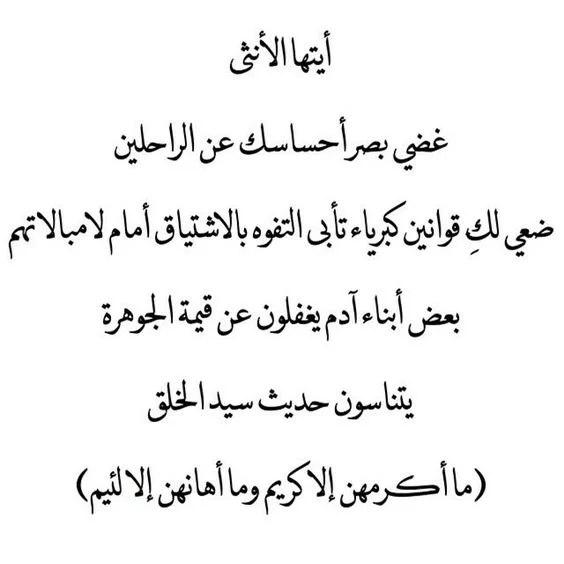 أيتها الأنثى
غضي بصر أحساسك عن الراحلين
ضعي لكِ قوانين كبرياء تأبى التفوه بالاشتياق أمام لامبالاتهم
بعض أبناء آدم يغفلون عن قيمة الجوهرة
يتناسون حديث سيد الخلق
(ما أكرمهن إلا كريم وما أهانهن إلا لئيم)